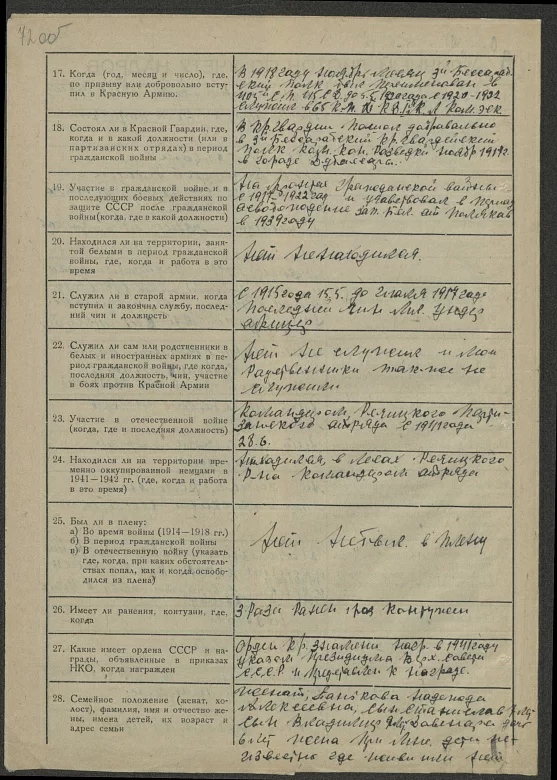 7200
17. Когда (год, месяц и число), где,
по призыву или добровольно всту-
пил в Красную Армию.
В 1918 году ноябрь месяц 3й Бессараб-
ский полк был
18. Состоял ли в Красной Гвардии, где,
когда и в какой должности (или в
партизанских отрядах) в период
гражданской войны
В кр. гвардии добровольно
в 3й Бессарабский кр. гвардейский
полк ком. кон. разведки ноябрь
в городе
19. Участие в гражданской войне и в
последующих боевых действиях по
защите СССР после гражданской
войны (когда, где в какой должности)
На фронтах Гражданской войны
с 1918–1922 год и участвовал в
зап. Бел. от Поляков
в 1939 году
20. Находился ли на территории, заня-
той белыми в период гражданской
войны, где, когда и работа в это
время
Нет не находился.
21. Служил ли в старой армии, когда
вступил и закончил службу, послед-
ний чин и должность
С 1915 года 15.5. до 1917 года
Последний чин мл. ундер
афицер
22. Служил ли сам или родственники в
белых и иностранных армиях в пе-
риод гражданской войны, где когда,
последняя должность, чин, участие
в боях против Красной Армии
Нет не служил и мои
родственники так-же не
служили
23. Участие в отечественной войне
(когда, где и последняя должность)
Командиром, Речицкого парти-
занского атряда с 1941 года
28.6.
24. Находился ли на территории вре-
менно оккупированной немцами в
1941—1942 гг. (где, когда и работа
в это время)
Находился, в лесах Речицкого
р-на командиром атряда
25. Был ли в плену:
а) Во время войны (1914—1918 гг.)
б) В период гражданской войны
в) В отечественную войну (указать
где, когда, при каких обстоятель-
ствах попал, как и когда освобо-
дился из плена)
Нет не был в плену
26. Имеет ли ранения, контузии, где,
когда
3 раза ранен 1 раз контужен
27. Какие имеет ордена СССР и на-
грады, объявленные в приказах
НКО, когда награжден
Орден кр. знамени нагр. в 1941 году
указом Президиума Верх. совета
С.С.С.Р и представлен к награде.
28. Семейное положение (женат, хо-
лост), фамилия, имя и отчество же-
ны, имена детей, их возраст и
адрес семьи
Женат, Надежда
Алексеевна, сын Станислав
сын Владимир
жена при мне, дети не-
известно где